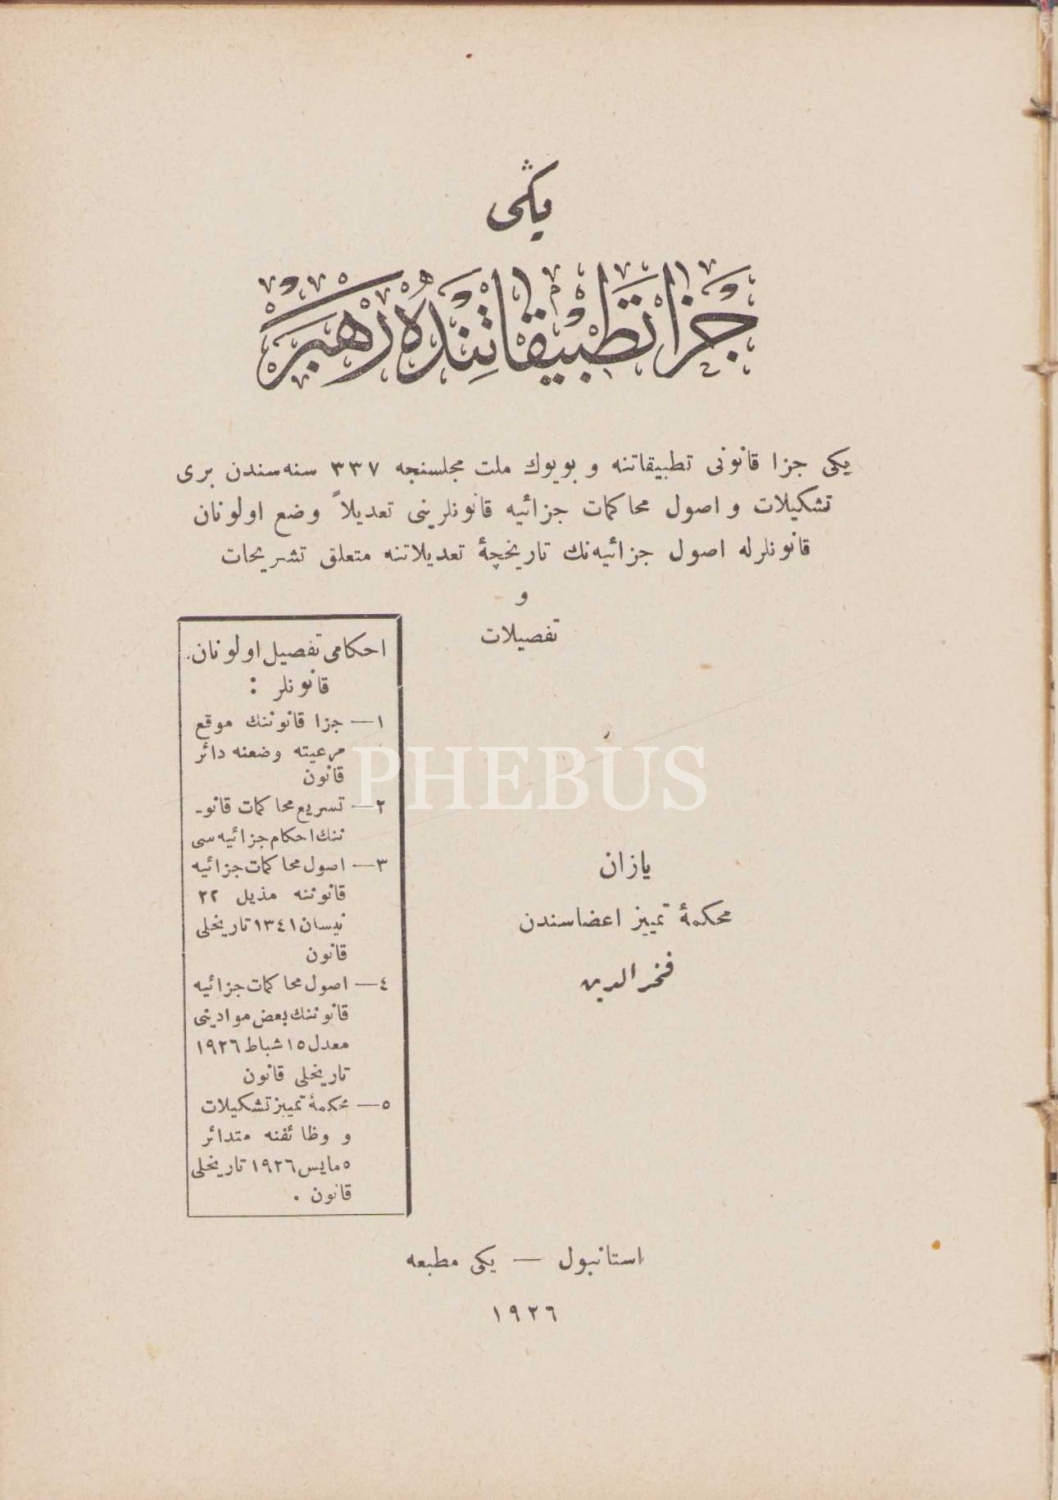 یکی
جزا تطبیقاتنده رهبر
یکی جزا قانونی تطبیقاتنه و بویوك ملت مجلسنجه ٣٣٧ سنه‌سندن بری
تشکیلات و اصول محاکمات جزائیه قانونلرینی تعدیلاً وضع اولونان
قانونلرله اصول جزائیه‌نك تاریخچهٔ تعدیلاتنه متعلق تشریحات
و
تفصیلات
احکامی تفصیل اولونان
قانونلر :
١— جزا قانوننك موقع
مرعیته وضعنه دائر
قانون
٢— تسریع محاکمات قانو-
ننك احکام جزائیه‌سی
٣— اصول محاکمات جزائیه
قانوننه مذیل ٢٢
نیسان ١٣٤١ تاریخلی
قانون
٤— اصول محاکمات جزائیه
قانوننك بعض موادینی
معدل ١٥ شباط ١٩٢٦
تاریخلی قانون
٥— محکمهٔ تمییز تشکیلات
و وظائفنه متدائر
٥ مایس ١٩٢٦ تاریخلی
قانون .
PHEBUS
یازان
محکمهٔ تمییز اعضاسندن
فخرالدین
استانبول — یکی مطبعه
١٩٢٦